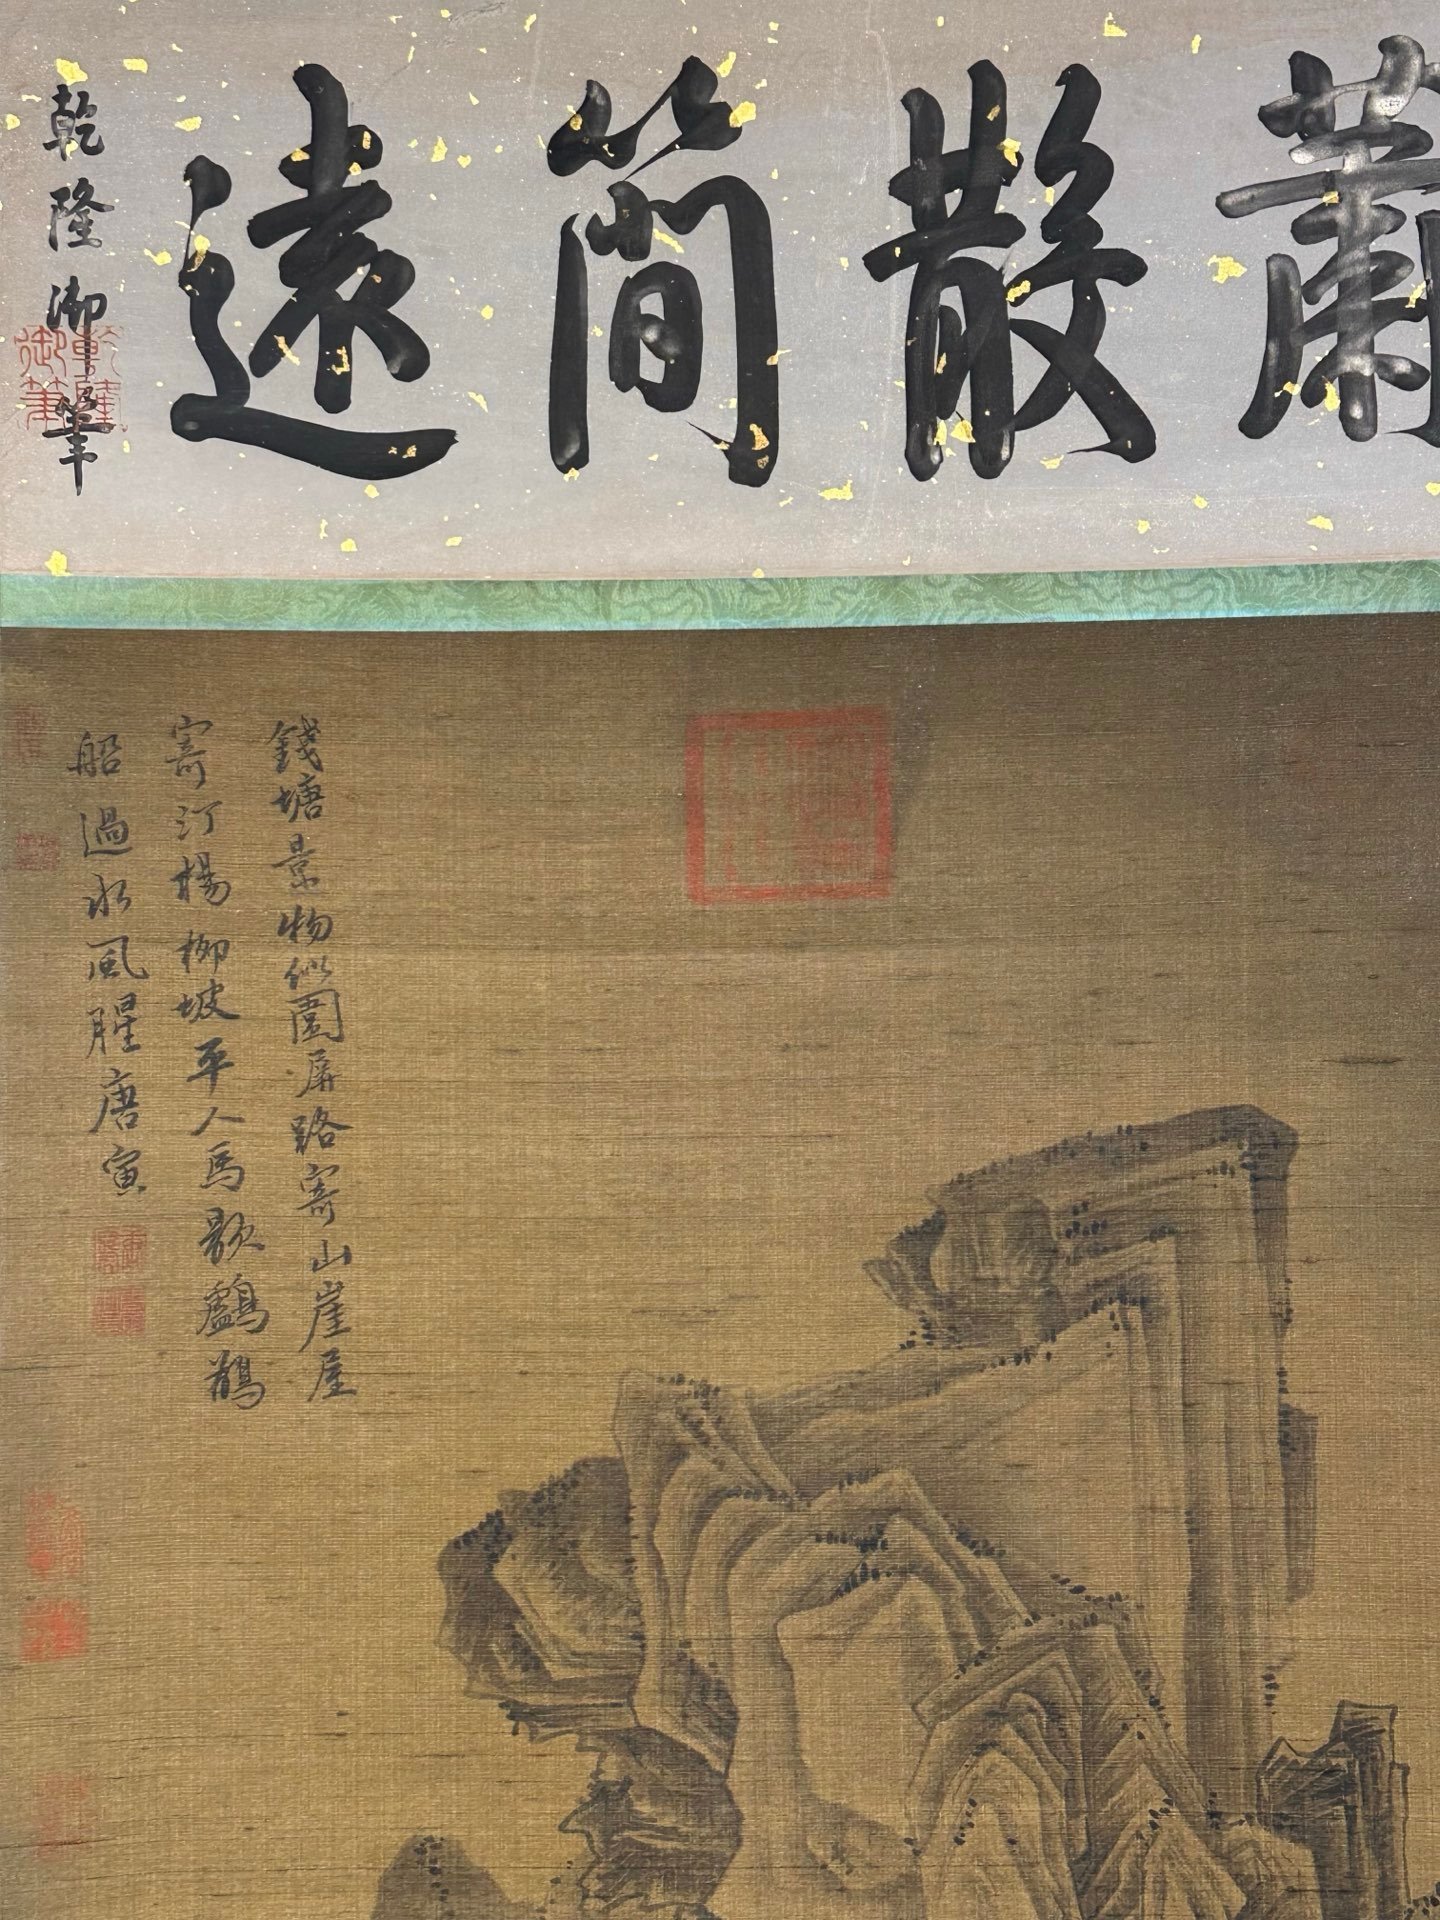 蕭散簡遠
乾隆御筆
乾隆御筆
錢塘景物似圍屏路寄山崖屋
寄汀楊柳坡平人馬歇鸕鶿
船過水風腥唐寅